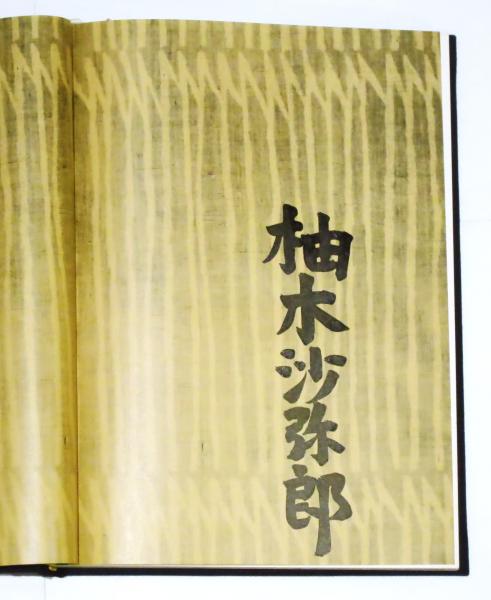 柚木沙弥郎